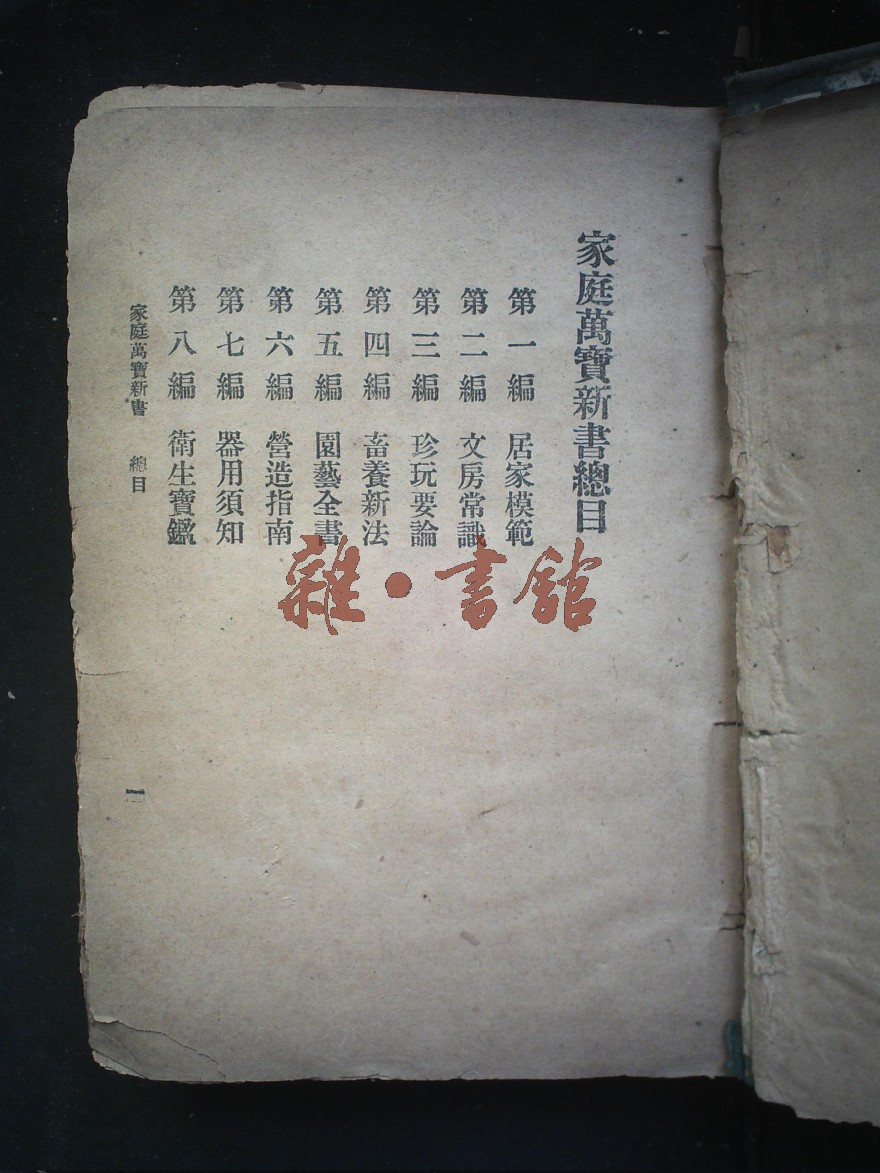 家庭萬寶新書總目
第一編 居家模範
第二編 文房常識
第三編 珍玩要論
第四編 畜養新法
第五編 園藝全書
第六編 營造指南
第七編 器用須知
第八編 衛生寶鑑
家庭萬寶新書 總目
一
雜·書館